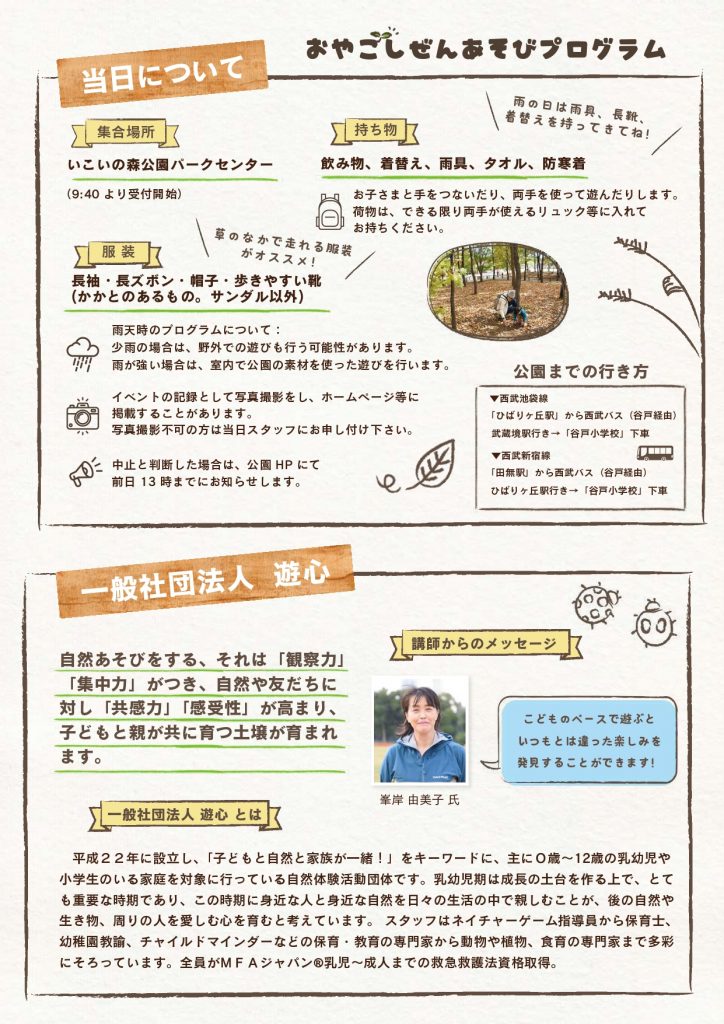 おやこしぜんあそびプログラム
当日について
集合場所
いこいの森公園パークセンター
（9:40 より受付開始）
持ち物
雨の日は雨具、長靴、
着替えを持ってきてね!
飲み物、着替え、雨具、タオル、防寒着
お子さまと手をつないだり、両手を使って遊んだりします。
荷物は、できる限り両手が使えるリュック等に入れて
お持ちください。
服 装
草のなかで走れる服装
がオススメ!
長袖・長ズボン・帽子・歩きやすい靴
(かかとのあるもの。サンダル以外)
雨天時のプログラムについて：
少雨の場合は、野外での遊びも行う可能性があります。
雨が強い場合は、室内で公園の素材を使った遊びを行います。
イベントの記録として写真撮影をし、ホームページ等に
掲載することがあります。
写真撮影不可の方は当日スタッフにお申し付け下さい。
中止と判断した場合は、公園 HP にて
前日 13 時までにお知らせします。
公園までの行き方
▼西武池袋線
「ひばりヶ丘駅」から西武バス（谷戸経由）
武蔵境駅行き→「谷戸小学校」下車
▼西武新宿線
「田無駅」から西武バス（谷戸経由）
ひばりヶ丘駅行き→「谷戸小学校」下車
一般社団法人 遊心
自然あそびをする、それは「観察力」
「集中力」がつき、自然や友だちに
対し「共感力」「感受性」が高まり、
子どもと親が共に育つ土壌が育まれ
ます。
講師からのメッセージ
こどものペースで遊ぶと
いつもとは違った楽しみを
発見することができます!
峯岸 由美子 氏
一般社団法人 遊心 とは
平成２２年に設立し、「子どもと自然と家族が一緒！」をキーワードに、主に０歳〜12歳の乳幼児や
小学生のいる家庭を対象に行っている自然体験活動団体です。乳幼児期は成長の土台を作る上で、とて
も重要な時期であり、この時期に身近な人と身近な自然を日々の生活の中で親しむことが、後の自然や
生き物、周りの人を愛しむ心を育むと考えています。 スタッフはネイチャーゲーム指導員から保育士、
幼稚園教諭、チャイルドマインダーなどの保育・教育の専門家から動物や植物、食育の専門家まで多彩
にそろっています。全員がＭＦＡジャパン®乳児〜成人までの救急救護法資格取得。